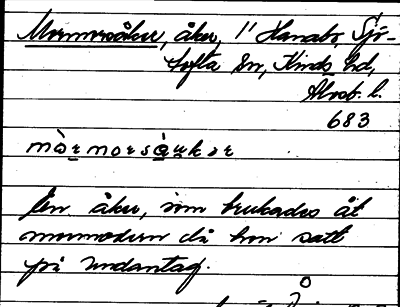 Mormorsåker, åker, 1/1 Hanabo, Sjö-
tofta sn, Kinds hd,
Älvsb. l.
683
mòrmorsàukər
En åker, som brukades åt
mormodern då hon satt
på undantag.